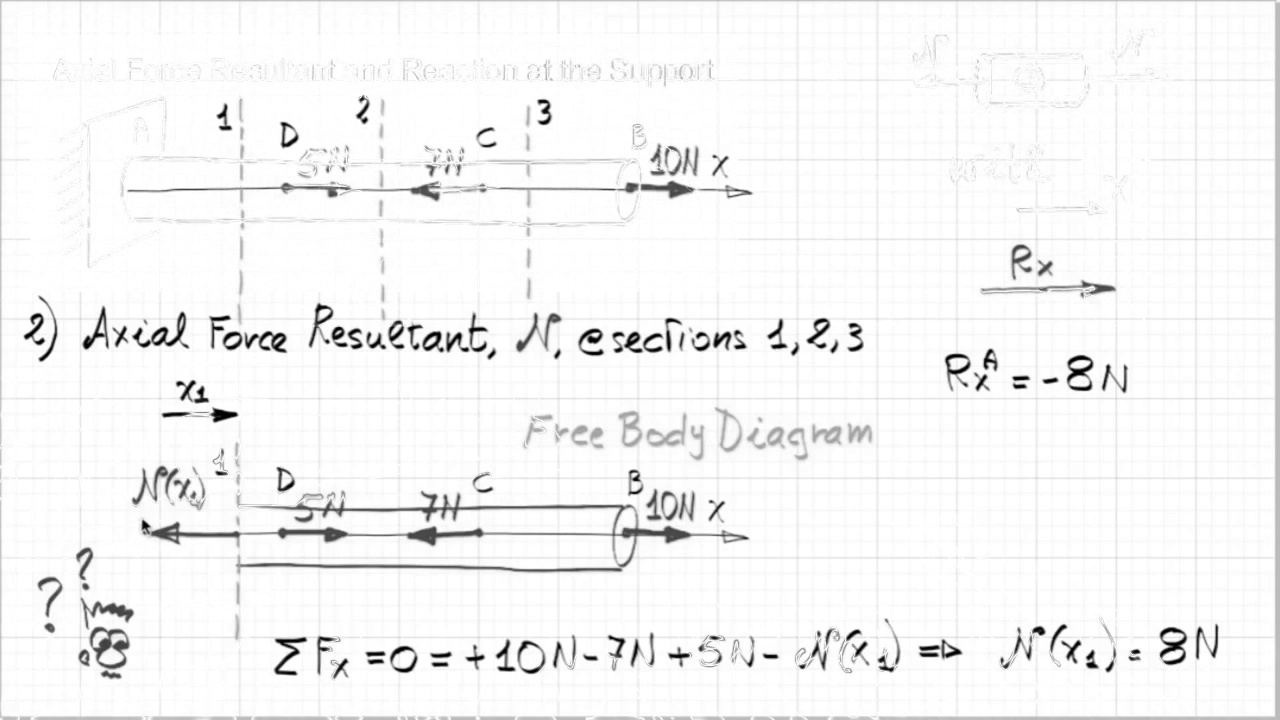 Axial Force Resultant and Reaction at the Support
N N
A 1 D 5N 2 7N C 3 B 10N x
with
x
Rx
2) Axial Force Resultant, N, @ sections 1,2,3
RxA = -8N
x1
Free Body Diagram
N(x1) 1 D 5N 7N C B 10N x
? ?
ΣFx = 0 = +10N - 7N + 5N - N(x1) => N(x1) = 8N